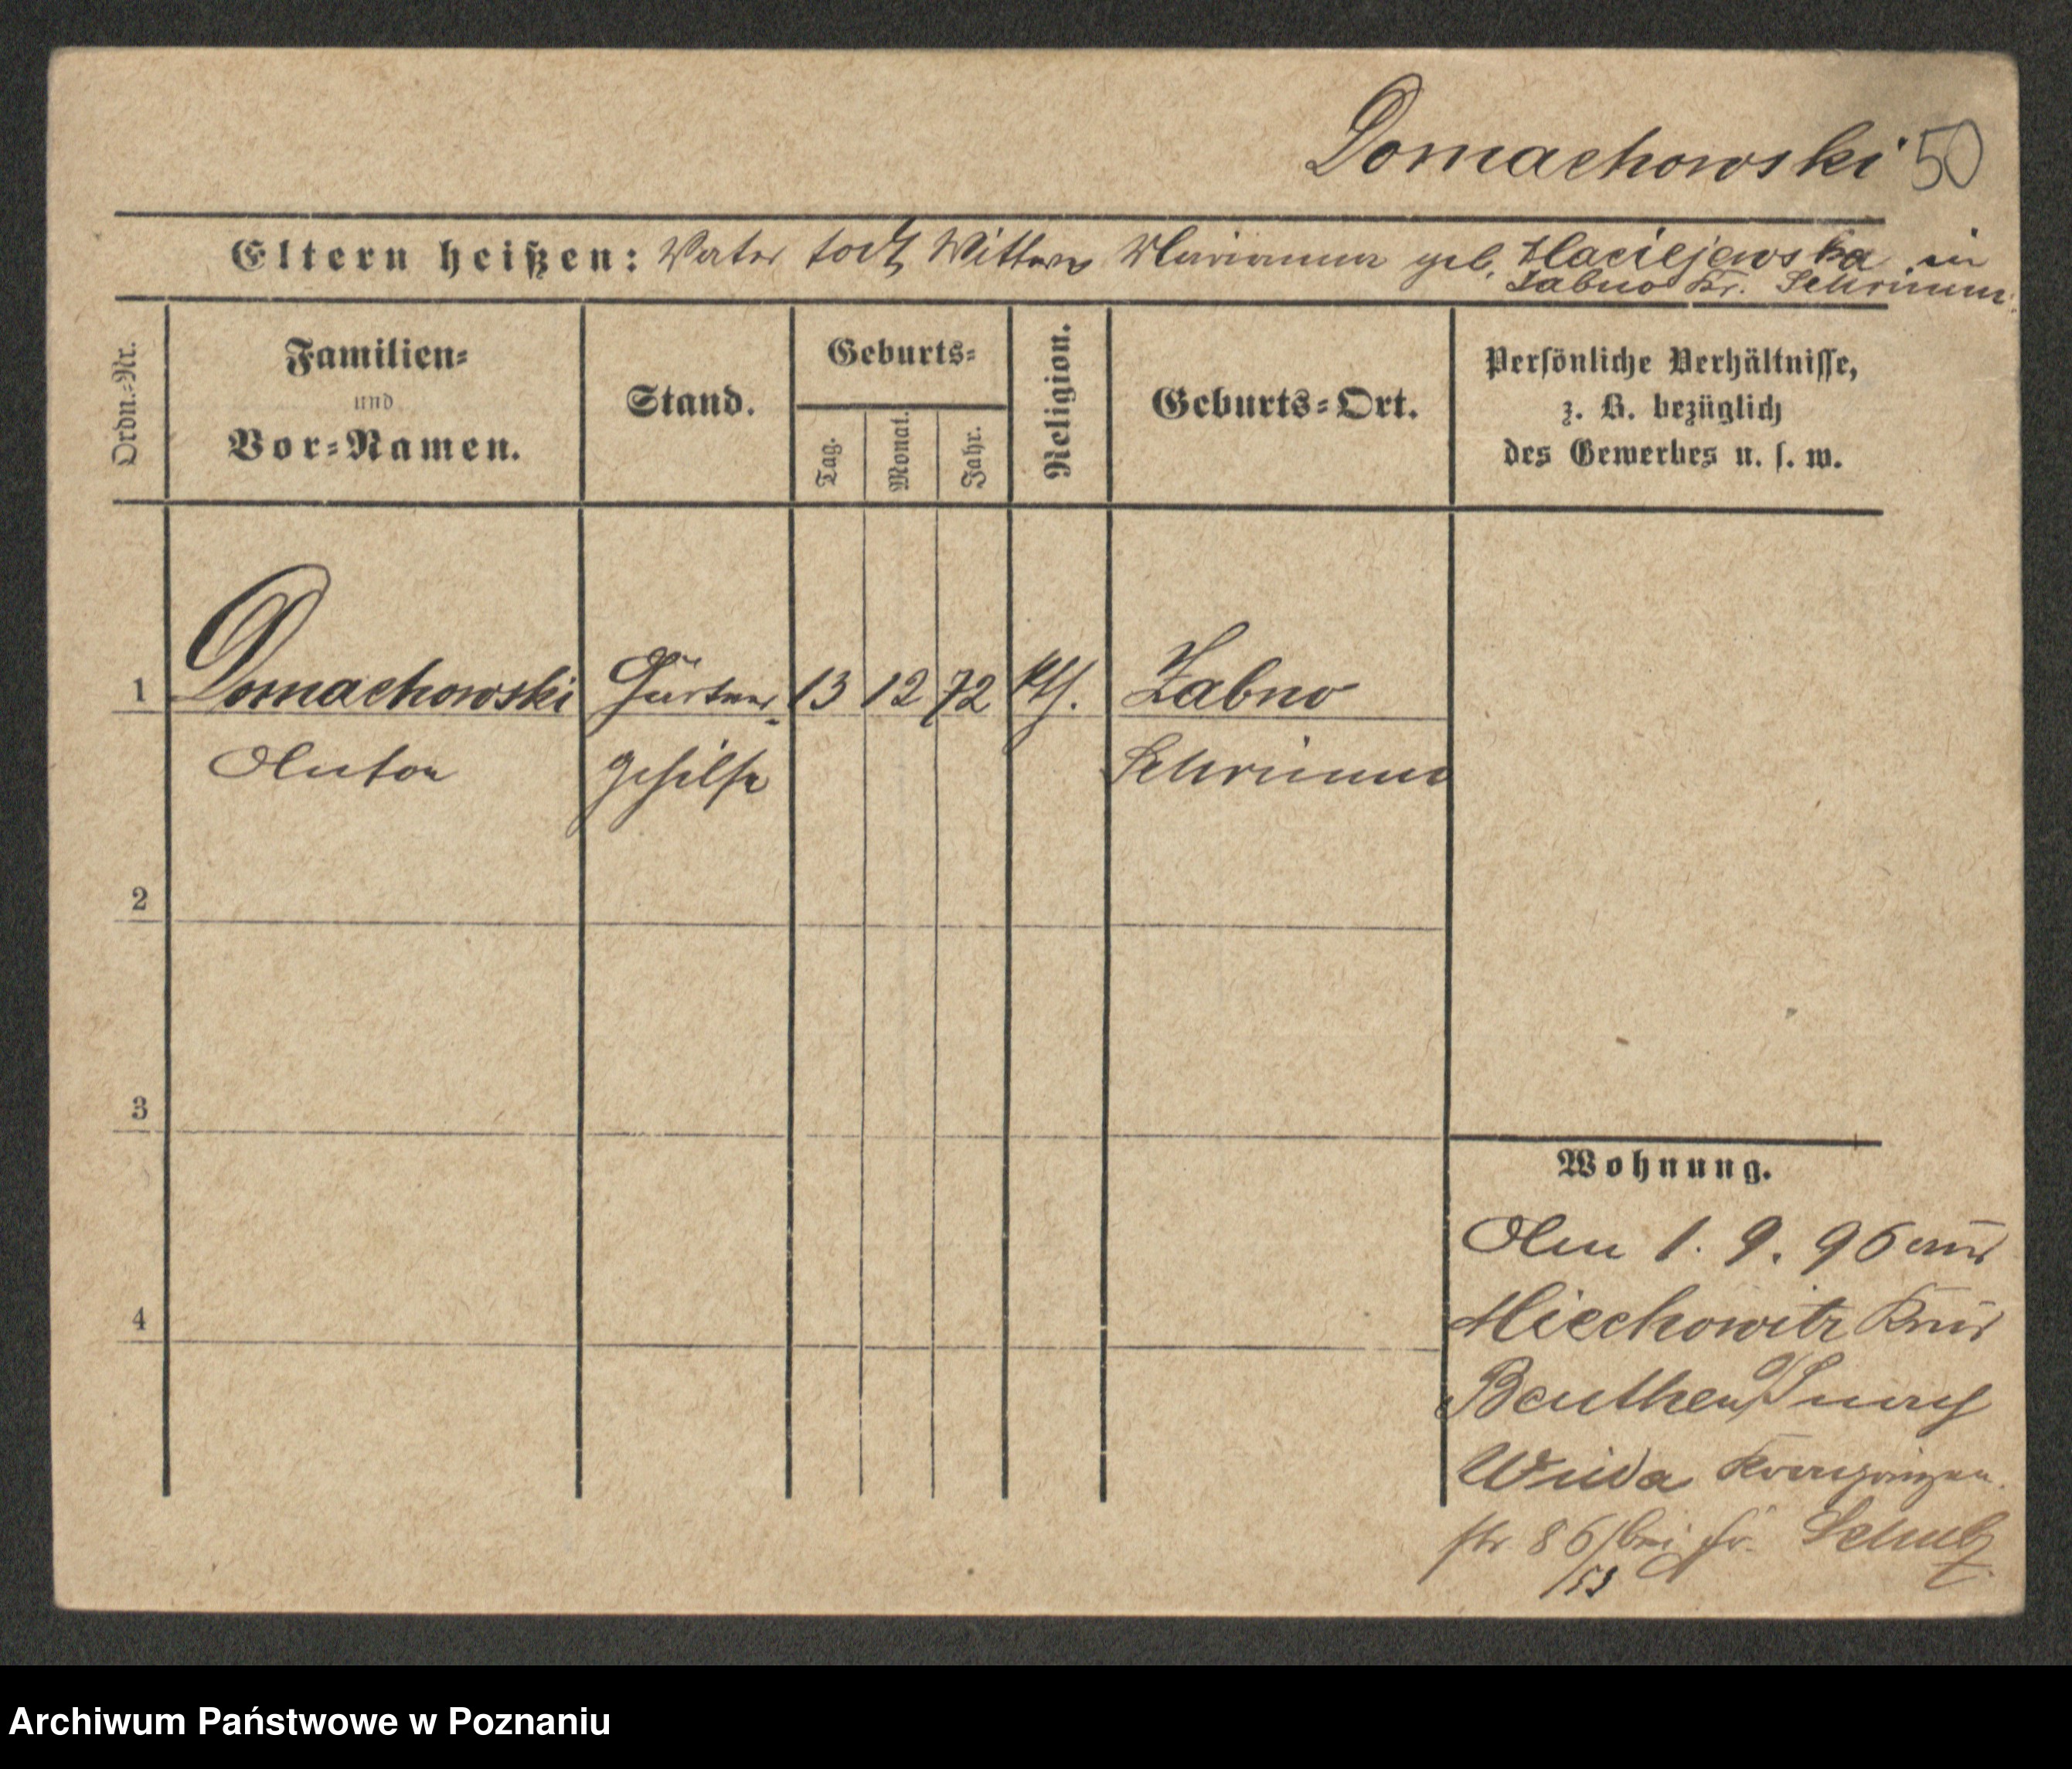 Domachowski 50
Eltern heißen: Vater todt, Wittwe Marianna geb. Maciejewska in
Zabno Kr. Schrimm.
Ordn.=Nr.
Familien=
und
Vor=Namen.
Stand.
Geburts=
Tag.
Monat.
Jahr.
Religion.
Geburts=Ort.
Persönliche Verhältnisse,
z. B. bezüglich
des Gewerbes u. s. w.
1 Domachowski Gärtner= 13 12 72 kth. Zabno
Anton gehilfe Schrimm
2
3
4
Wohnung.
Am 1. 9. 96 aus
Miechowitz Kreis
Beuthen nach
Wilda Kronprinzen
str 86/ bei Schulz
Archiwum Państwowe w Poznaniu